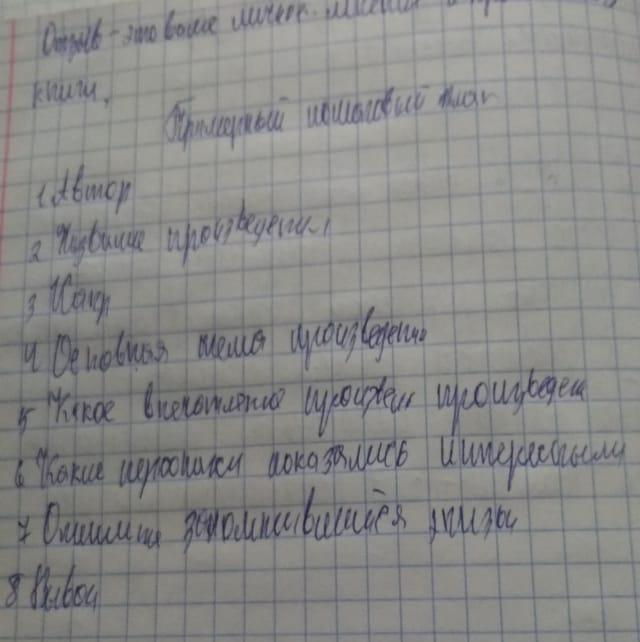 Отзыв - это ваше личное мнение о
книги.
Примерный пошаговый план
1 Автор
2 Название произведения
3 Жанр
4 Основная тема произведения
5 Какое впечатление произвел произведен
6 Какие персонажи показались интересными
7 Опишите запомнившийся эпизод
8 Вывод